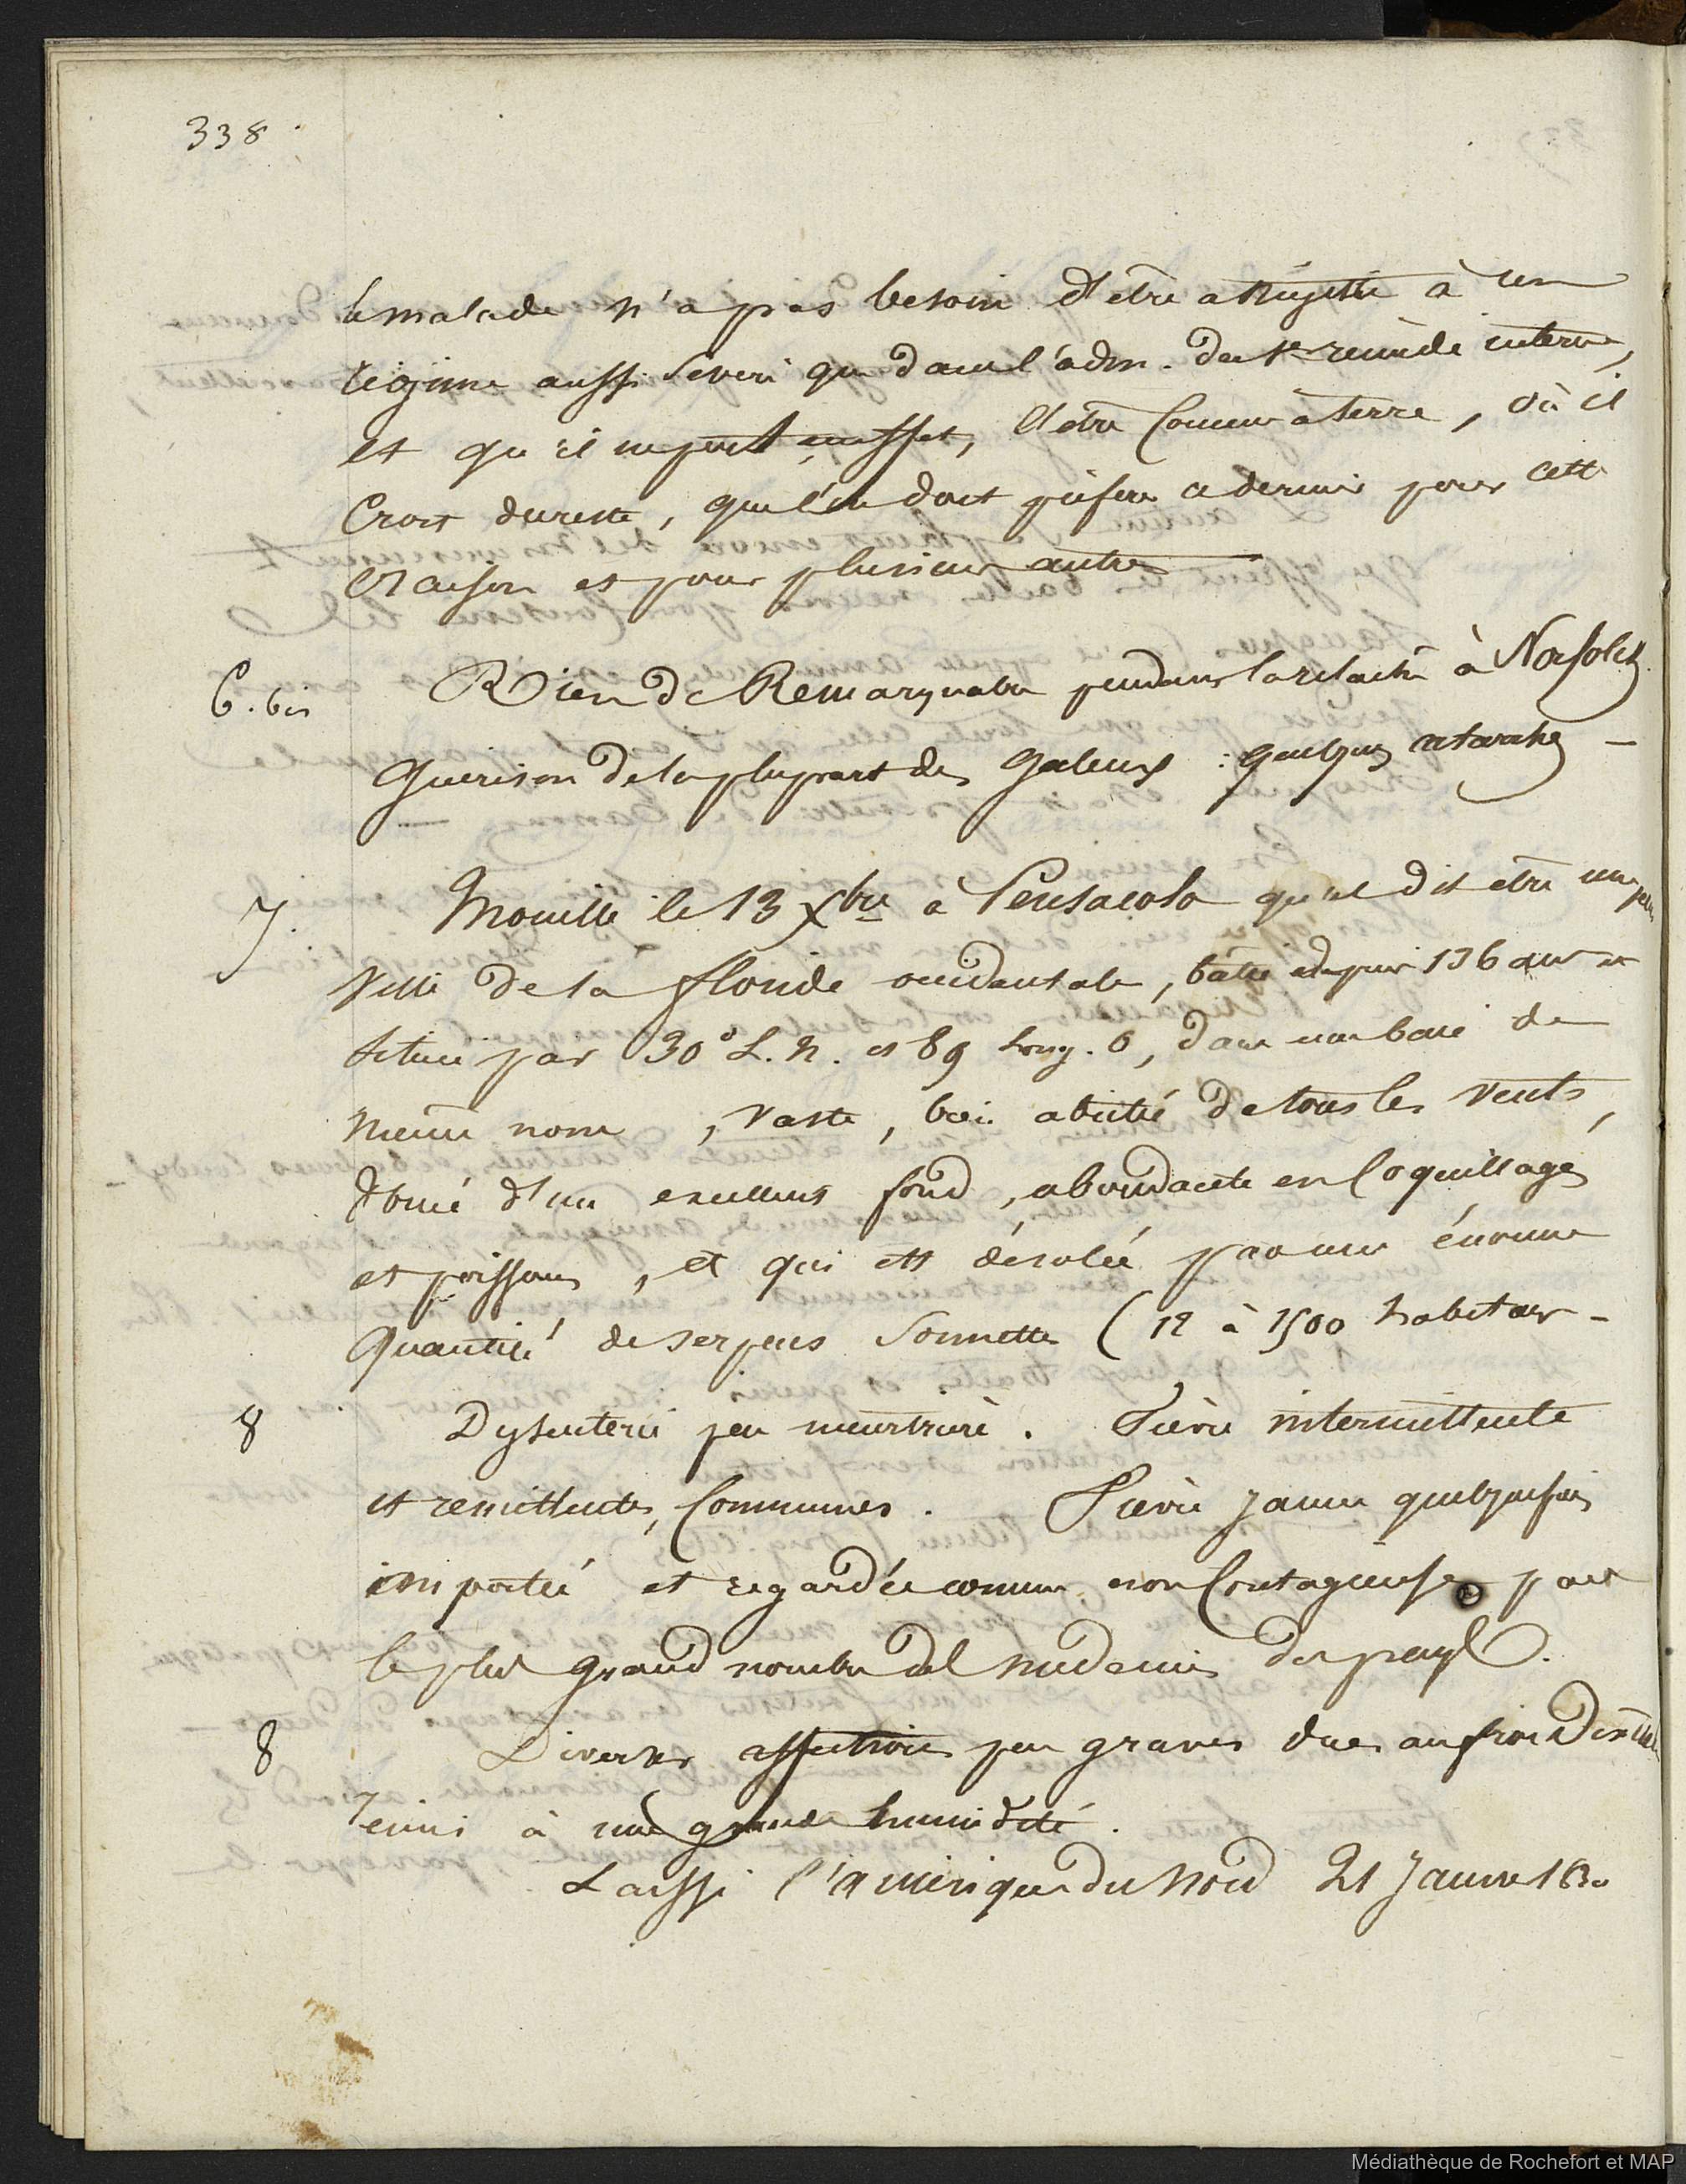 338.
le malade n'a pas besoin d'être assujetti à un
regime aussi severe que dans l'adm. des remède interne,
et qu'il ne peut en effet, l'etre comme à terre, où il
Croit dureste, que l'on doit préférer ce dernier pour cette
raison et pour plusieurs autres
6. bis Rien de Remarquable pendant la relache à Norfolck.
Guerison de la plupart des Galeux : quelques catarrhes —
7. Mouille le 13 Xbre à Pensacola qu'il dit etre une
Ville de la floride occidentale, bâtie depuis 136 ans et
située par 30° L. N. et 89 Long. O, dans une baie de
même nom, vaste, bien abritée de tous les vents,
doué d'un excellent fond, abondante en Coquillages
et poissons, et qui est désolée par une énorme
Quantité de serpens Sonnette (12 à 1500 habitans -
8 Dysenterie peu meurtriere. Fièvre intermittente
et remittentes, Communes. Fièvre jaune quelquefois
importée et regardée comme non Contagieuse par
le plus grand nombre des medecins du pays.
8 Diverses affections peu graves dues au froid
reuni à une grande humidité.
Laisse l'amerique du Nord 21 Janvier
Médiathèque de Rochefort et MAP